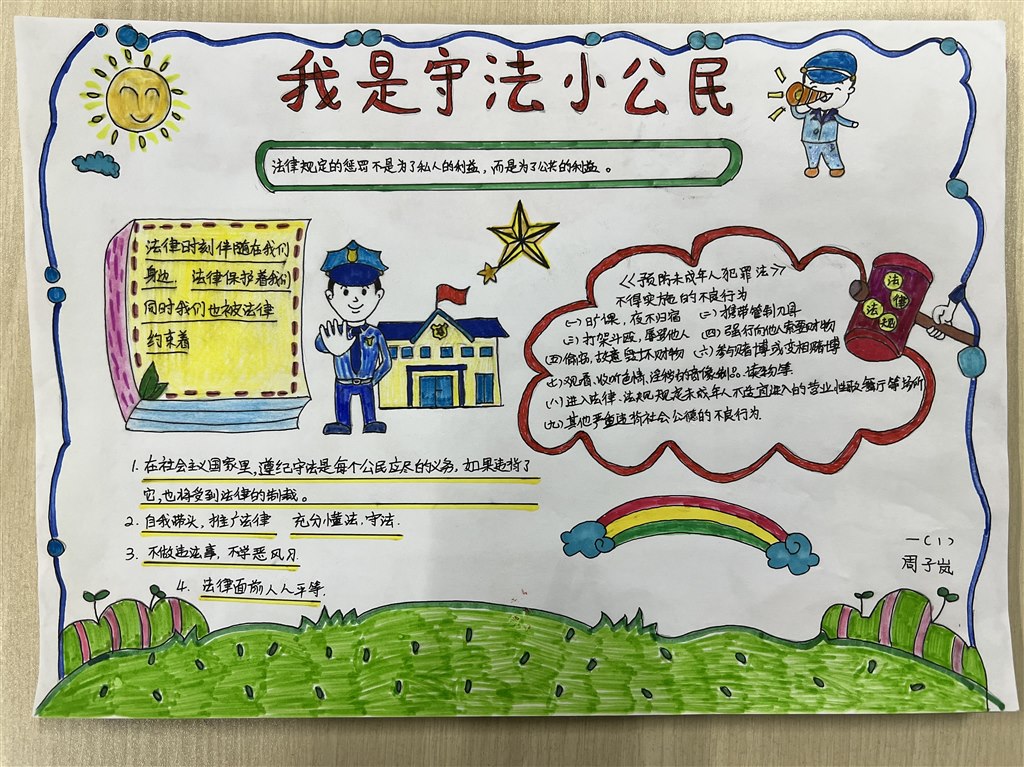 我是守法小公民
法律规定的惩罚不是为了私人的利益，而是为了公共的利益。
法律时刻伴随在我们
身边 法律保护着我们
同时我们也被法律
约束着
《预防未成年人犯罪法》
不得实施的不良行为
(一)旷课，夜不归宿 (二)携带管制刀具
(三)打架斗殴，辱骂他人 (四)强行向他人索要财物
(五)偷窃，故意毁坏财物 (六)参与赌博或变相赌博
(七)观看、收听色情、淫秽的音像制品、读物等
(八)进入法律、法规规定未成年人不适宜进入的营业性歌舞厅等场所
(九)其他严重违背社会公德的不良行为.
法
律
法
规
1. 在社会主义国家里，遵纪守法是每个公民应尽的义务，如果违背了
它，也将受到法律的制裁。
2. 自我带头，推广法律 充分懂法、守法.
3. 不做违法事，不学恶风习.
4. 法律面前人人平等.
一(1)
周子岚